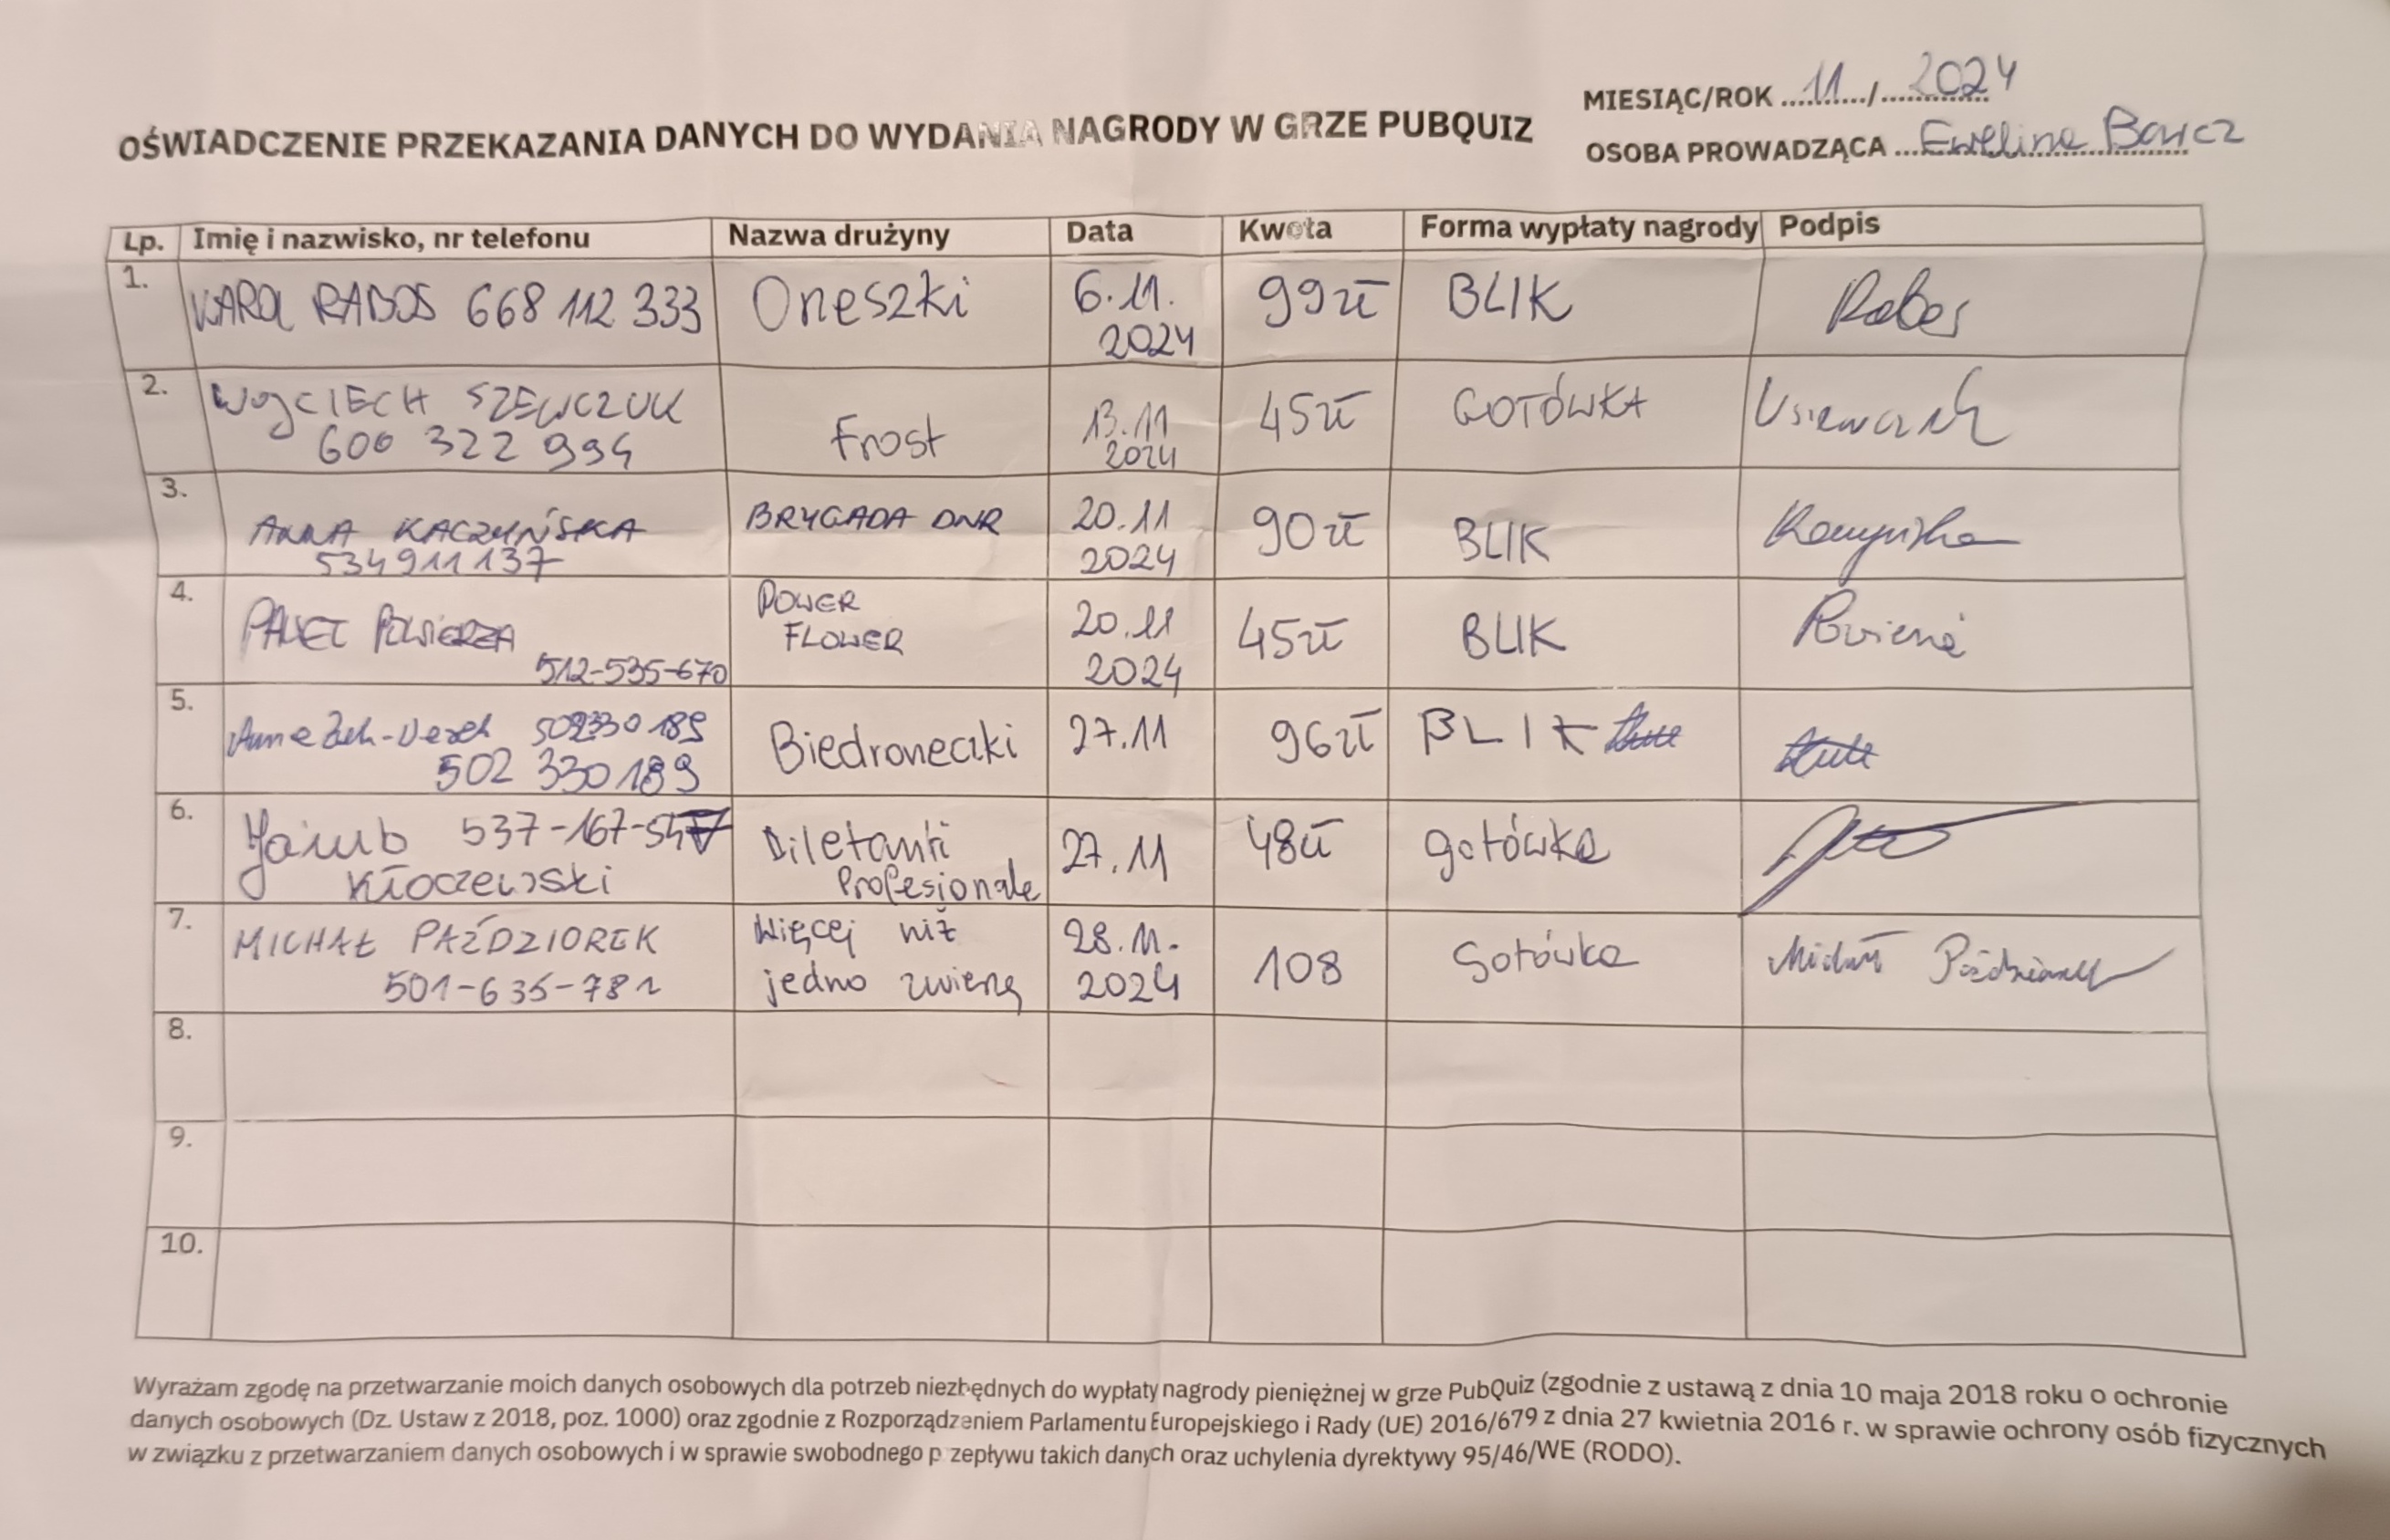 MIESIĄC/ROK 11 / 2024
OŚWIADCZENIE PRZEKAZANIA DANYCH DO WYDANIA NAGRODY W GRZE PUBQUIZ
OSOBA PROWADZĄCA Ewelina
Lp. Imię i nazwisko, nr telefonu Nazwa drużyny Data Kwota Forma wypłaty nagrody Podpis
1. KAROL RABOS 668 112 333 Oneszki 6.11. 99zł BLIK Rabos
2024
2. WOJCIECH SZEWCZUK Frost 13.11 45zł GOTÓWKA
600 322 994 2024
3. ANNA KACZYŃSKA BRYGADA DNR 20.11 90zł BLIK Kaczyńska
534911137 2024
4. PAWEŁ POWIERZA POWER 20.11 45zł BLIK
FLOWER
512-535-670 2024
5. Biedroneczki 27.11 96zł BLIK
502 330 189
6. Jakub 537-167-547 Diletanti 27.11 48zł gotówka
Kłoczewski Profesjonale
7. MICHAŁ PAŹDZIOREK Więcej niż 28.11. 108 Gotówka Michał Paździorek
501-635-781 jedno zwierzę 2024
8.
9.
10.
Wyrażam zgodę na przetwarzanie moich danych osobowych dla potrzeb niezbędnych do wypłaty nagrody pieniężnej w grze PubQuiz (zgodnie z ustawą z dnia 10 maja 2018 roku o ochronie
danych osobowych (Dz. Ustaw z 2018, poz. 1000) oraz zgodnie z Rozporządzeniem Parlamentu Europejskiego i Rady (UE) 2016/679 z dnia 27 kwietnia 2016 r. w sprawie ochrony osób fizycznych
w związku z przetwarzaniem danych osobowych i w sprawie swobodnego przepływu takich danych oraz uchylenia dyrektywy 95/46/WE (RODO).